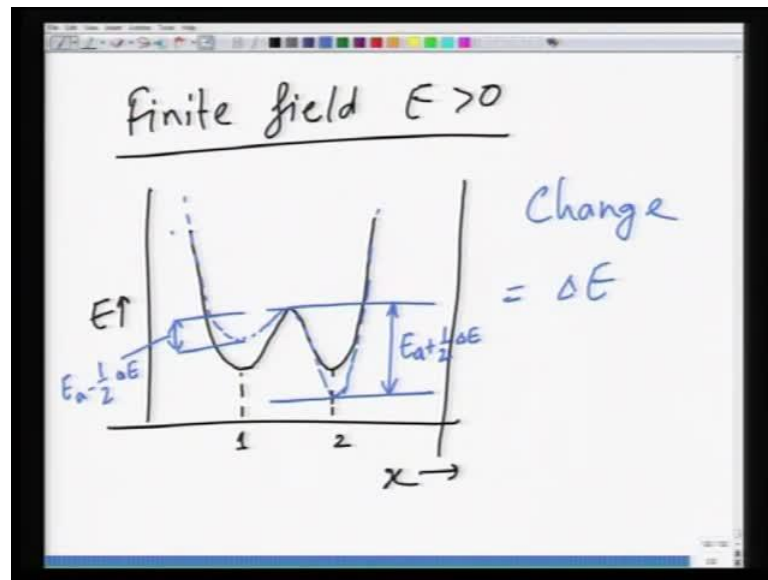 Finite field E >0
Change
= ΔE
E↑
Ea-1/2 ΔE
Ea+1/2 ΔE
1 2
x →